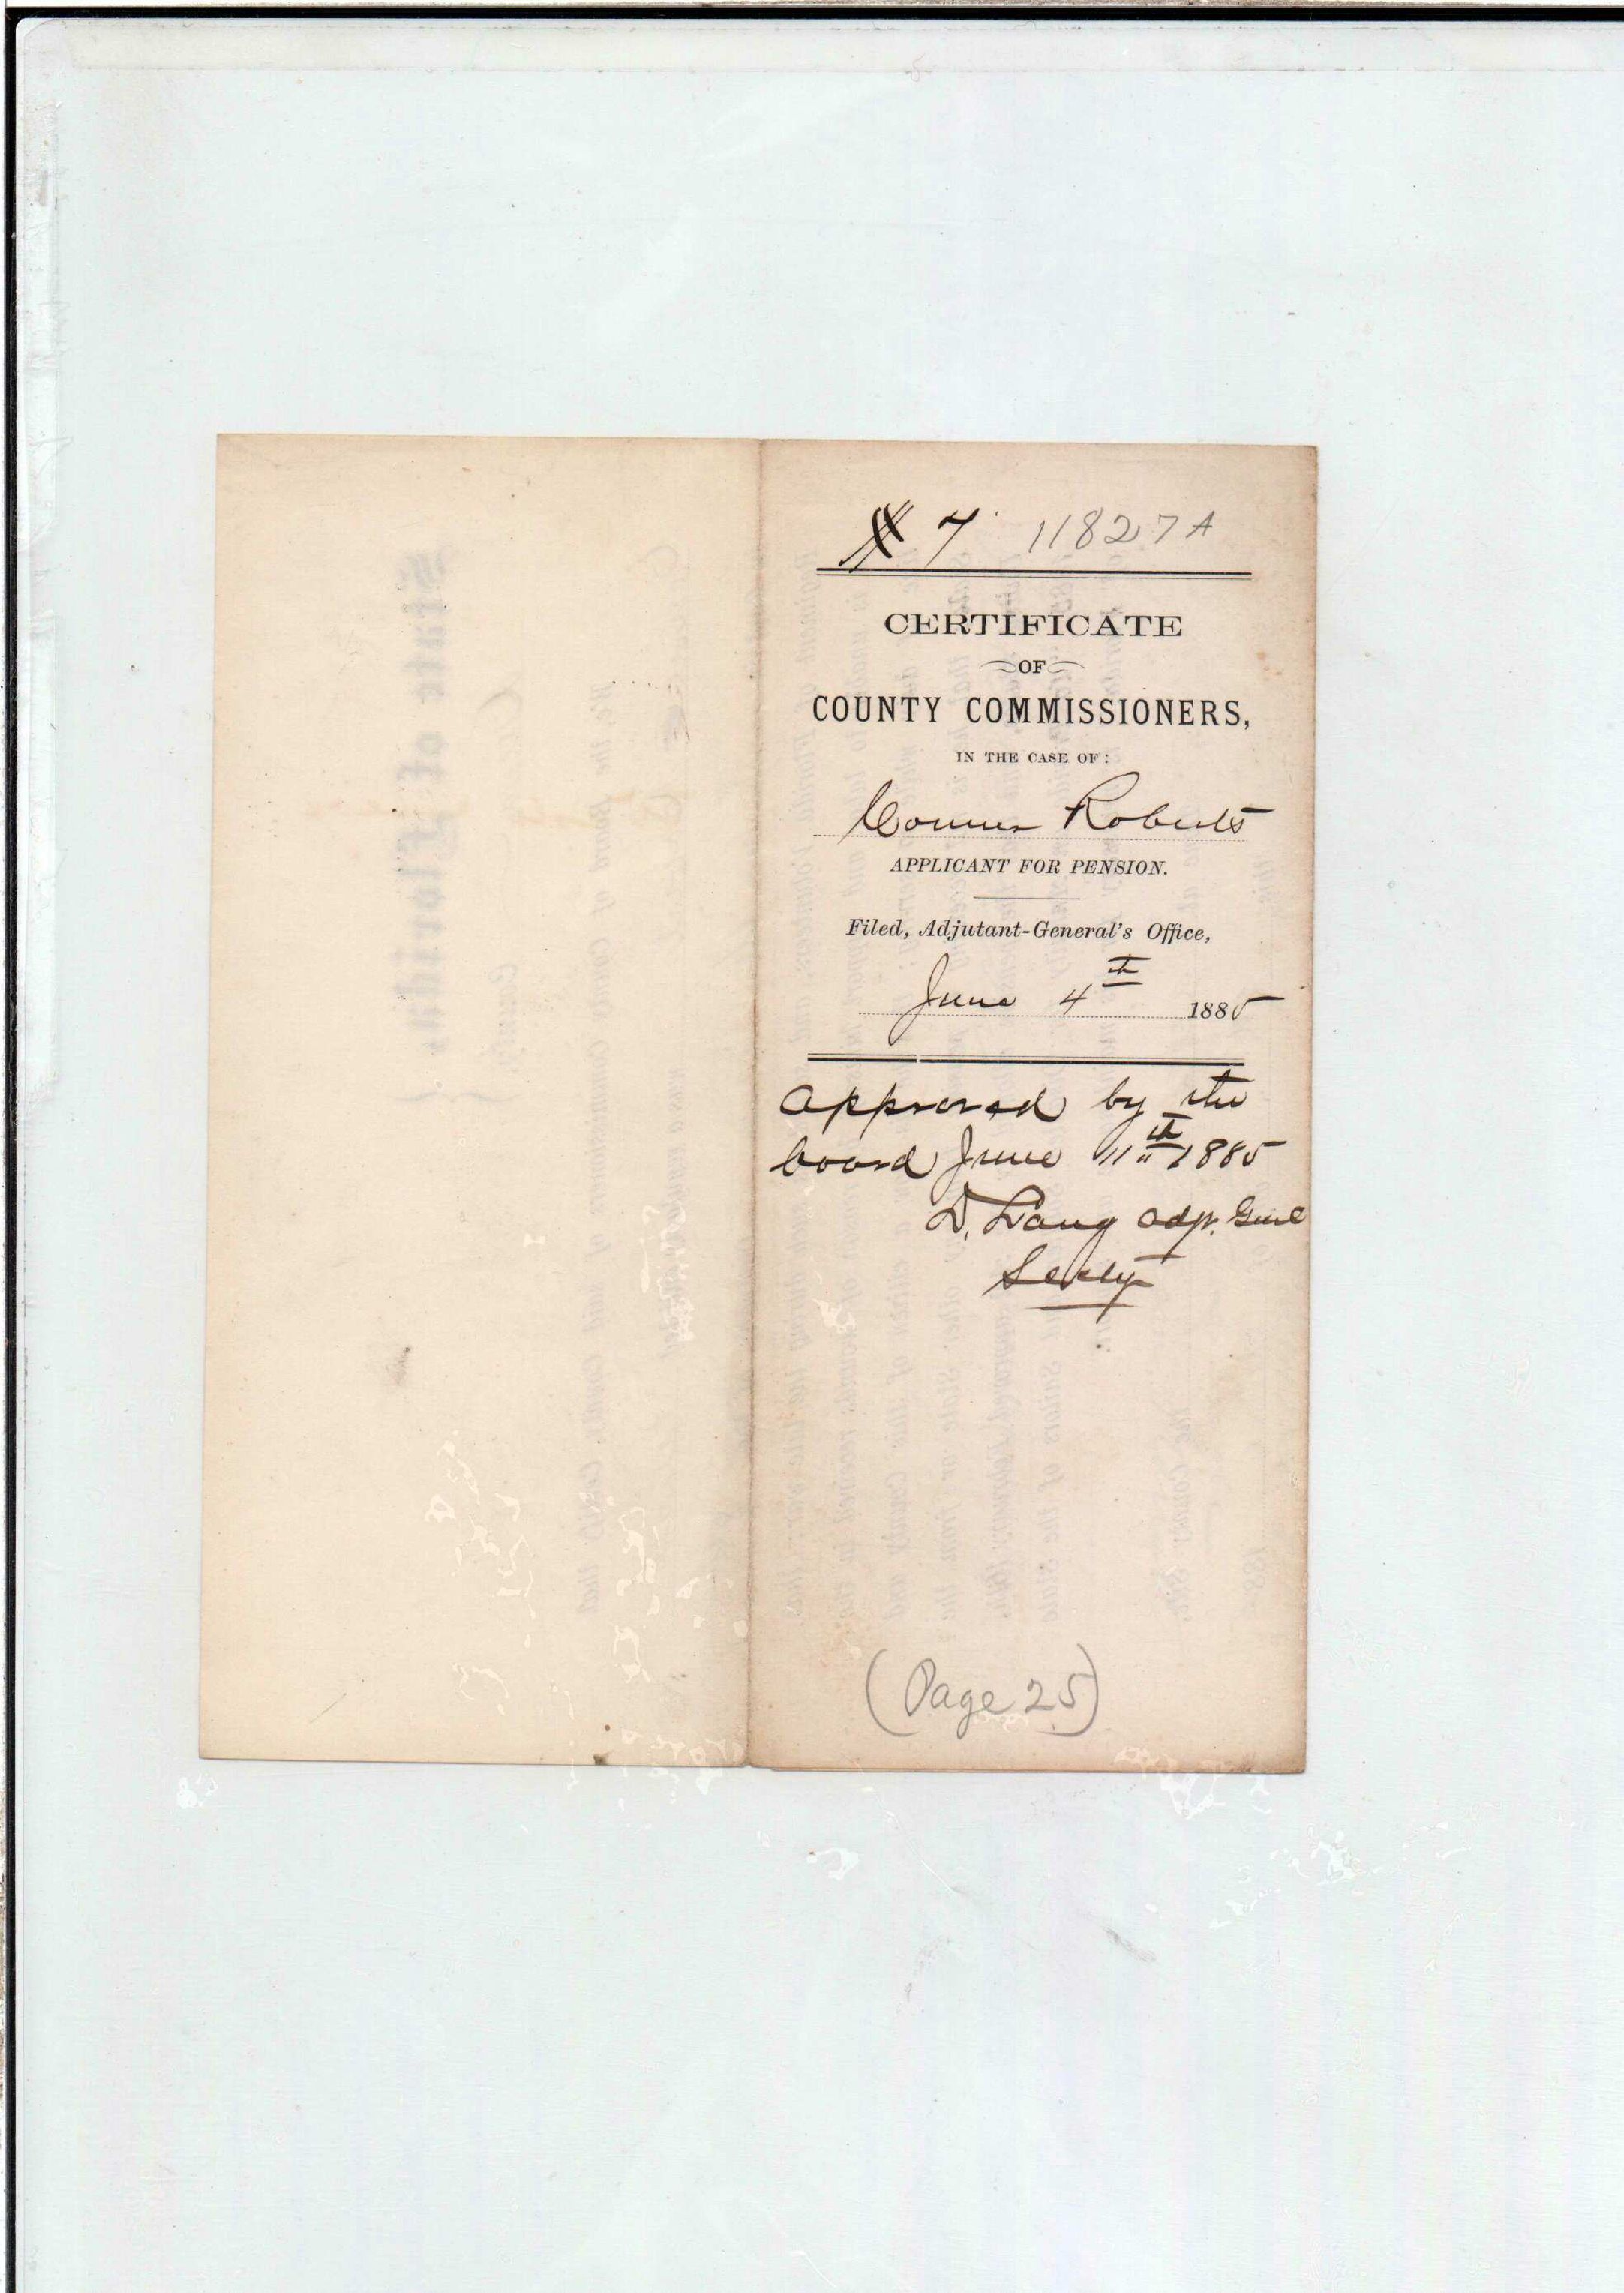 # 7 11827 A
CERTIFICATE
OF
COUNTY COMMISSIONERS,
IN THE CASE OF:
Conner Roberts
APPLICANT FOR PENSION.
Filed, Adjutant-General's Office,
June 4th 1885
Approved by the
board June 11th 1885
D. Lang Adjt. Genl
Secty
(Page 25)